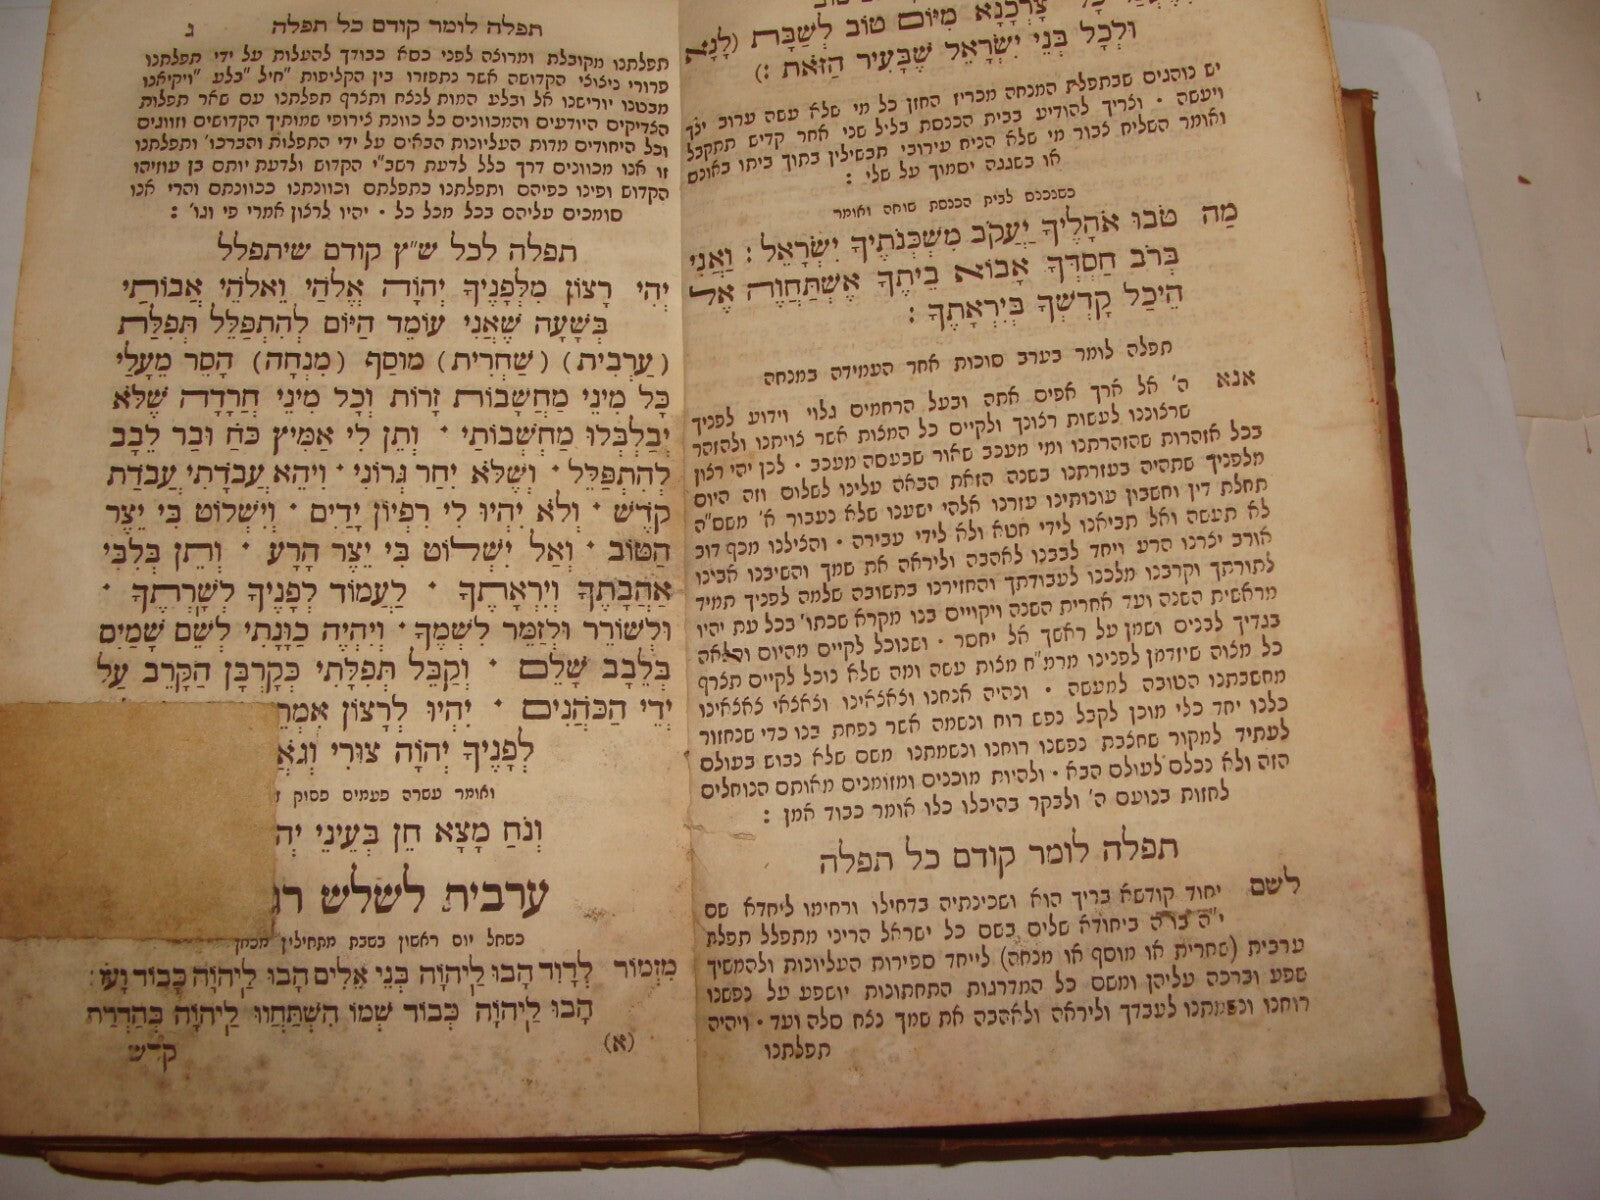 צָרְכָנָא מִיּוֹם טוֹב לְשַׁבָּת (לָנָא
וּלְכָל בְּנֵי יִשְׂרָאֵל שֶׁבָּעִיר הַזֹּאת :)
יש נוהגים שבתפלת המנחה מכריז החזן כל מי שלא עשה ערוב ילך
ויעשה · וצריך להודיע בבית הכנסת בליל שני אחר קדיש תתקבל
ואומר השליח צבור מי שלא הניח עירובי תבשילין בתוך ביתו באונס
או בשגגה יסמוך על שלי :
כשנכנס לבית הכנסת שוחה ואומר
מַה טֹבוּ אֹהָלֶיךָ יַעֲקֹב מִשְׁכְּנֹתֶיךָ יִשְׂרָאֵל : וַאֲנִי
בְּרֹב חַסְדְּךָ אָבוֹא בֵיתֶךָ אֶשְׁתַּחֲוֶה אֶל
הֵיכַל קָדְשְׁךָ בְּיִרְאָתֶךָ :
תפלה לומר בערב סוכות אחר העמידה במנחה
אנא ה' אל ארך אפים אתה ובעל הרחמים גלוי וידוע לפניך
שרצוננו לעשות רצונך ולקיים כל המצות אשר צויתנו ולהזהר
בכל אזהרות שהזהרתנו ומי מעכב שאור שבעסה מעכב · לכן יהי רצון
מלפניך שתהיה בעזרתנו בשנה הזאת הבאה עלינו לשלום וזה היום
תחלת דין וחשבון עונותינו עזרנו אלהי ישענו שלא נעבור א' משס"ה
לא תעשה ואל תביאנו לידי חטא ולא לידי עבירה · והצילנו מכף דוב
אורב יצרנו הרע ויחד לבבנו לאהבה וליראה את שמך והשיבנו אבינו
לתורתך וקרבנו מלכנו לעבודתך והחזירנו בתשובה שלמה לפניך תמיד
מראשית השנה ועד אחרית השנה ויקויים בנו מקרא שכתו' בכל עת יהיו
בגדיך לבנים ושמן על ראשך אל יחסר · ושנוכל לקיים מהיום והלאה
כל מצוה שיזדמן לפנינו מרמ"ח מצות עשה ומה שלא נוכל לקיים תצרף
מחשבתנו הטובה למעשה · ונהיה אנחנו וצאצאינו וצאצאי צאצאינו
כלנו יחד כלי מוכן לקבל נפש רוח ונשמה אשר נפחת בנו כדי שנחזור
לעתיד למקור שחצבת נפשנו רוחנו ונשמתנו משם שלא נבוש בעולם
הזה ולא נכלם לעולם הבא · ולהיות מוכנים ומזומנים מאותם הנוחלים
לחזות בנועם ה' ולבקר בהיכלו כלו אומר כבוד אמן :
תפלה לומר קודם כל תפלה
לשם יחוד קודשא בריך הוא ושכינתיה בדחילו ורחימו ליחדא שם
י"ה בו"ה ביחודא שלים בשם כל ישראל הריני מתפלל תפלת
ערבית (שחרית או מוסף או מנחה) לייחד ספירות העליונות ולהמשיך
שפע וברכה עליהן ומשם כל המדרגות התחתונות יושפע על נפשנו
רוחנו ונשמתנו לעבדך וליראה ולאהבה את שמך נצח סלה ועד · ויהיה
תפלתנו
תפלה לומר קודם כל תפלה ג
תפלתנו מקובלת ומרוצה לפני כסא כבודך להעלות על ידי תפלתנו
פרורי ניצוצי הקדושה אשר נתפזרו בין הקליפות "חיל "בלע "ויקיאנו
מבטנו יורישנו אל ובלע המות לנצח ותצרף תפלתנו עם שאר תפלות
הצדיקים היודעים והמכוונים כל כוונת צירופי שמותיך הקדושים וזווגים
וכל היחודים מדות העליונות הבאים על ידי התפלות והברכו' ותפלתנו
זו אנו מכוונים דרך כלל לדעת רשב"י הקדוש ולדעת יותם בן עוזיהו
הקדוש ופינו כפיהם ותפלתנו כתפלתם וכוונתנו ככוונתם והרי אנו
סומכים עליהם בכל מכל כל · יהיו לרצון אמרי פי וגו' :
תפלה לכל ש"ץ קודם שיתפלל
יְהִי רָצוֹן מִלְּפָנֶיךָ יְהוָה אֱלֹהַי וֵאלֹהֵי אֲבוֹתַי
בְּשָׁעָה שֶׁאֲנִי עוֹמֵד הַיּוֹם לְהִתְפַּלֵּל תְּפִלַּת
(עַרְבִית) (שַׁחְרִית) מוּסַף (מִנְחָה) הָסֵר מֵעָלַי
כָּל מִינֵי מַחֲשָׁבוֹת זָרוֹת וְכָל מִינֵי חֲרָדָה שֶׁלֹּא
יְבַלְבְּלוּ מַחְשְׁבוֹתַי · וְתֵן לִי אַמִּיץ כֹּחַ וּבַר לֵבָב
לְהִתְפַּלֵּל · וְשֶׁלֹּא יִחַר גְּרוֹנִי · וִיהֵא עֲבֹדָתִי עֲבֹדַת
קֹדֶשׁ · וְלֹא יִהְיוּ לִי רִפְיוֹן יָדַיִם · וְיִשְׁלוֹט בִּי יֵצֶר
הַטּוֹב · וְאַל יִשְׁלוֹט בִּי יֵצֶר הָרָע · וְתֵן בְּלִבִּי
אַהֲבָתֶךָ וְיִרְאָתֶךָ · לַעֲמוֹד לְפָנֶיךָ לְשָׁרְתֶךָ ·
וּלְשׁוֹרֵר וּלְזַמֵּר לִשְׁמֶךָ · וְיִהְיֶה כַּוָּנָתִי לְשֵׁם שָׁמַיִם
בְּלֵבָב שָׁלֵם · וְקַבֵּל תְּפִלָּתִי כְּקָרְבָּן הַקָּרֵב עַל
יְדֵי הַכֹּהֲנִים · יִהְיוּ לְרָצוֹן אִמְרֵ
לְפָנֶיךָ יְהוָה צוּרִי וְגֹאֲ
ואומר עשרה פעמים פסוק ז
וְנֹחַ מָצָא חֵן בְּעֵינֵי יְה
ערבית לשלש רג
כשחל יום ראשון בשבת מתחילין מכאן
מִזְמוֹר לְדָוִד הָבוּ לַיְהוָה בְּנֵי אֵלִים הָבוּ לַיהוָה כָּבוֹד וָעֹז :
הָבוּ לַיהוָה כְּבוֹד שְׁמוֹ הִשְׁתַּחֲווּ לַיהוָה בְּהַדְרַת
(א) קדש